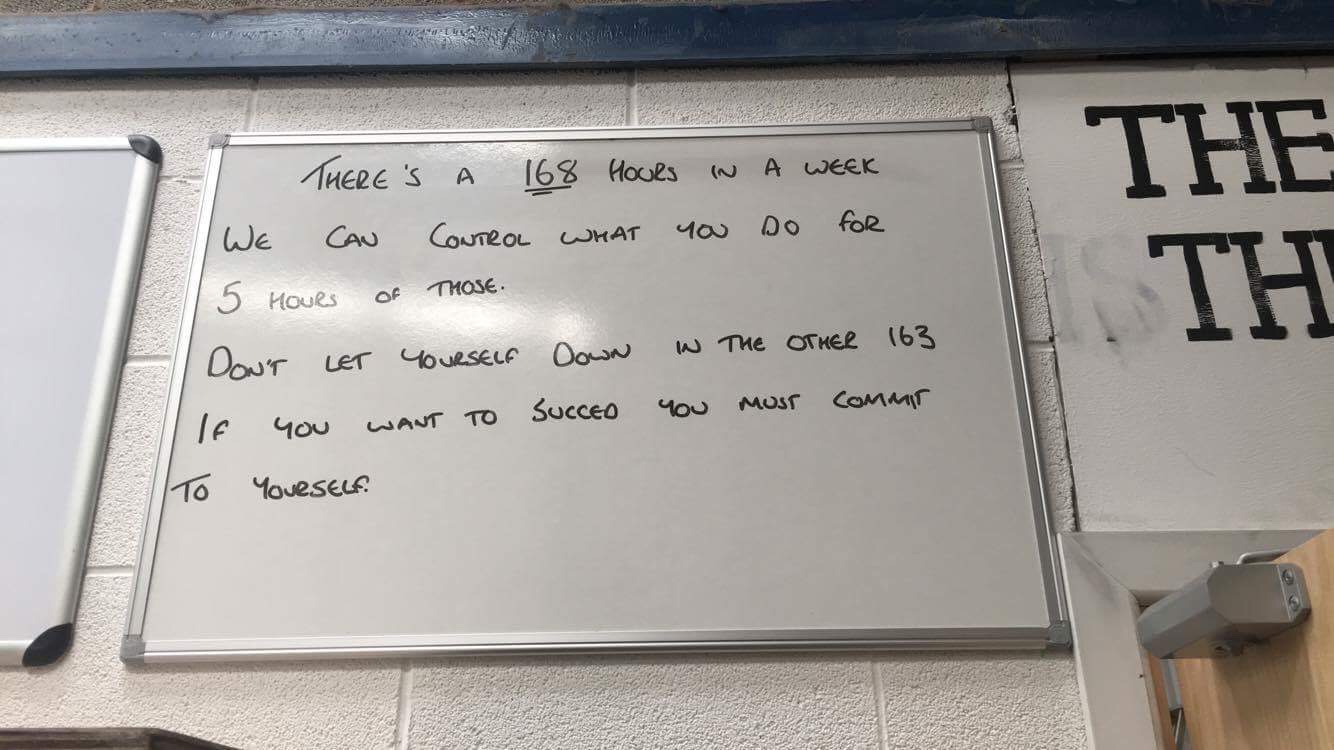 THERE'S A 168 HOURS IN A WEEK
WE CAN CONTROL WHAT YOU DO FOR
5 HOURS OF THOSE.
DON'T LET YOURSELF DOWN IN THE OTHER 163
IF YOU WANT TO SUCCED YOU MUST COMMIT
TO YOURSELF.
THE
IS TH